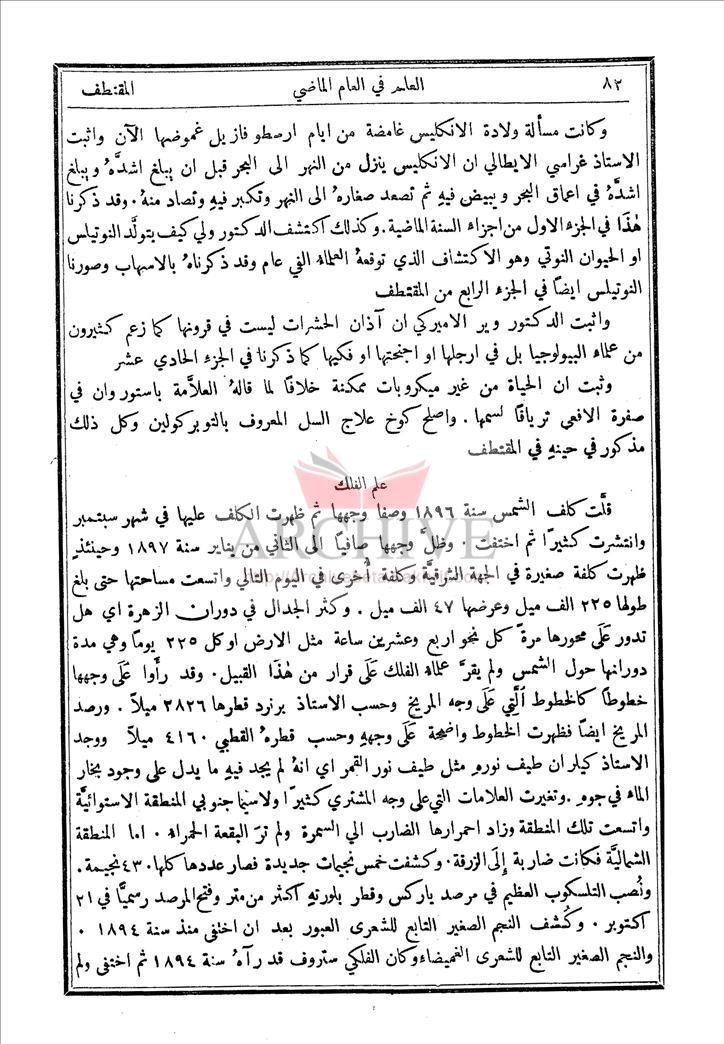 ٨٢ العلم في العام الماضي المقتطف
وكانت مسألة ولادة الانكليس غامضة من ايام ارسطو فازيل غموضها الآن واثبت
الاستاذ غراسي الايطالي ان الانكليس ينزل من النهر الى البحر قبل ان يبلغ اشدَّهُ ويبلغ
اشدَّهُ في اعماق البحر ويبيض فيهِ ثم تصعد صغارهُ الى النهر وتكبر فيهِ وتصاد منهُ . وقد ذكرنا
هٰذا في الجزء الاول من اجزاء السنة الماضية . وكذلك اكتشف الدكتور ولي كيف يتولَّد النوتيلس
او الحيوان النوتي وهو الاكتشاف الذي توقعهُ العلماء الفي عام وقد ذكرناهُ بالاسهاب وصورنا
النوتيلس ايضًا في الجزء الرابع من المقتطف
واثبت الدكتور وير الاميركي ان آذان الحشرات ليست في قرونها كما زعم كثيرون
من علماء البيولوجيا بل في ارجلها او اجنحتها او فكيها كما ذكرنا في الجزء الحادي عشر
وثبت ان الحياة من غير ميكروبات ممكنة خلافًا لما قالهُ العلاَّمة باستور وان في
صفرة الافعى ترياقًا لسمها . واصلح كوخ علاج السل المعروف بالتوبركولين وكل ذلك
مذكور في حينهِ في المقتطف
علم الفلك
قلَّت كلف الشمس سنة ١٨٩٦ وصفا وجهها ثم ظهرت الكلف عليها في شهر سبتمبر
وانتشرت كثيرًا ثم اختفت . وظلَّ وجهها صافيًا الى الثاني من يناير سنة ١٨٩٧ وحينئذٍ
ظهرت كلفة صغيرة في الجهة الشرقيَّة وكلفة أُخرى في اليوم التالي واتسعت مساحتها حتى بلغ
طولها ٢٢٥ الف ميل وعرضها ٤٧ الف ميل . وكثر الجدال في دوران الزهرة اي هل
تدور عَلَى محورها مرةً كل نحو اربع وعشرين ساعة مثل الارض او كل ٢٢٥ يومًا وهي مدة
دورانها حول الشمس ولم يقرَّ علماء الفلك عَلَى قرار من هٰذا القبيل . وقد رأَوا عَلَى وجهها
خطوطًا كالخطوط الَّتي عَلَى وجه المريخ وحسب الاستاذ برنرد قطرها ٣٨٢٦ ميلاً . ورصد
المريخ ايضًا فظهرت الخطوط واضحة عَلَى وجههِ وحسب قطرهُ القطبي ٤١٦٠ ميلاً ووجد
الاستاذ كيلر ان طيف نورهِ مثل طيف نور القمر اي انهُ لم يجد فيهِ ما يدل على وجود بخار
الماء في جوهِ . وتغيرت العلامات التي على وجه المشتري كثيرًا ولاسيما جنوبي المنطقة الاستوائيَّة
واتسعت تلك المنطقة وزاد احمرارها الضارب الى السمرة ولم ترَ البقعة الحمراء . اما المنطقة
الشماليَّة فكانت ضاربة إِلى الزرقة . وكشفت خمس نجيمات جديدة فصار عددها كلها ٤٣٠ نجيمة .
ونُصب التلسكوب العظيم في مرصد ياركس وقطر بلورتهِ اكثر من متر وفتح المرصد رسميًّا في ٢١
اكتوبر . وكُشف النجم الصغير التابع للشعرى العبور بعد ان اختفى منذ سنة ١٨٩٤ .
والنجم الصغير التابع للشعرى الغميضاء وكان الفلكي ستروف قد رآهُ سنة ١٨٩٤ ثم اختفى ولم
ARCHIVE